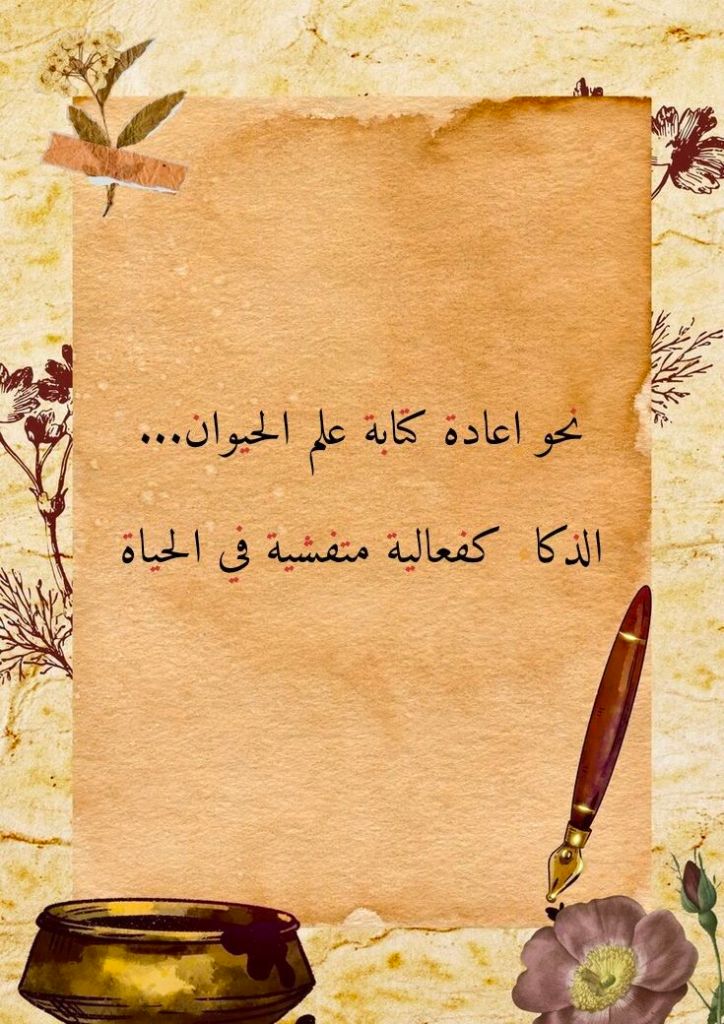 نحو اعادة كتابة علم الحيوان...
الذكا كفعالية متفشية في الحياة